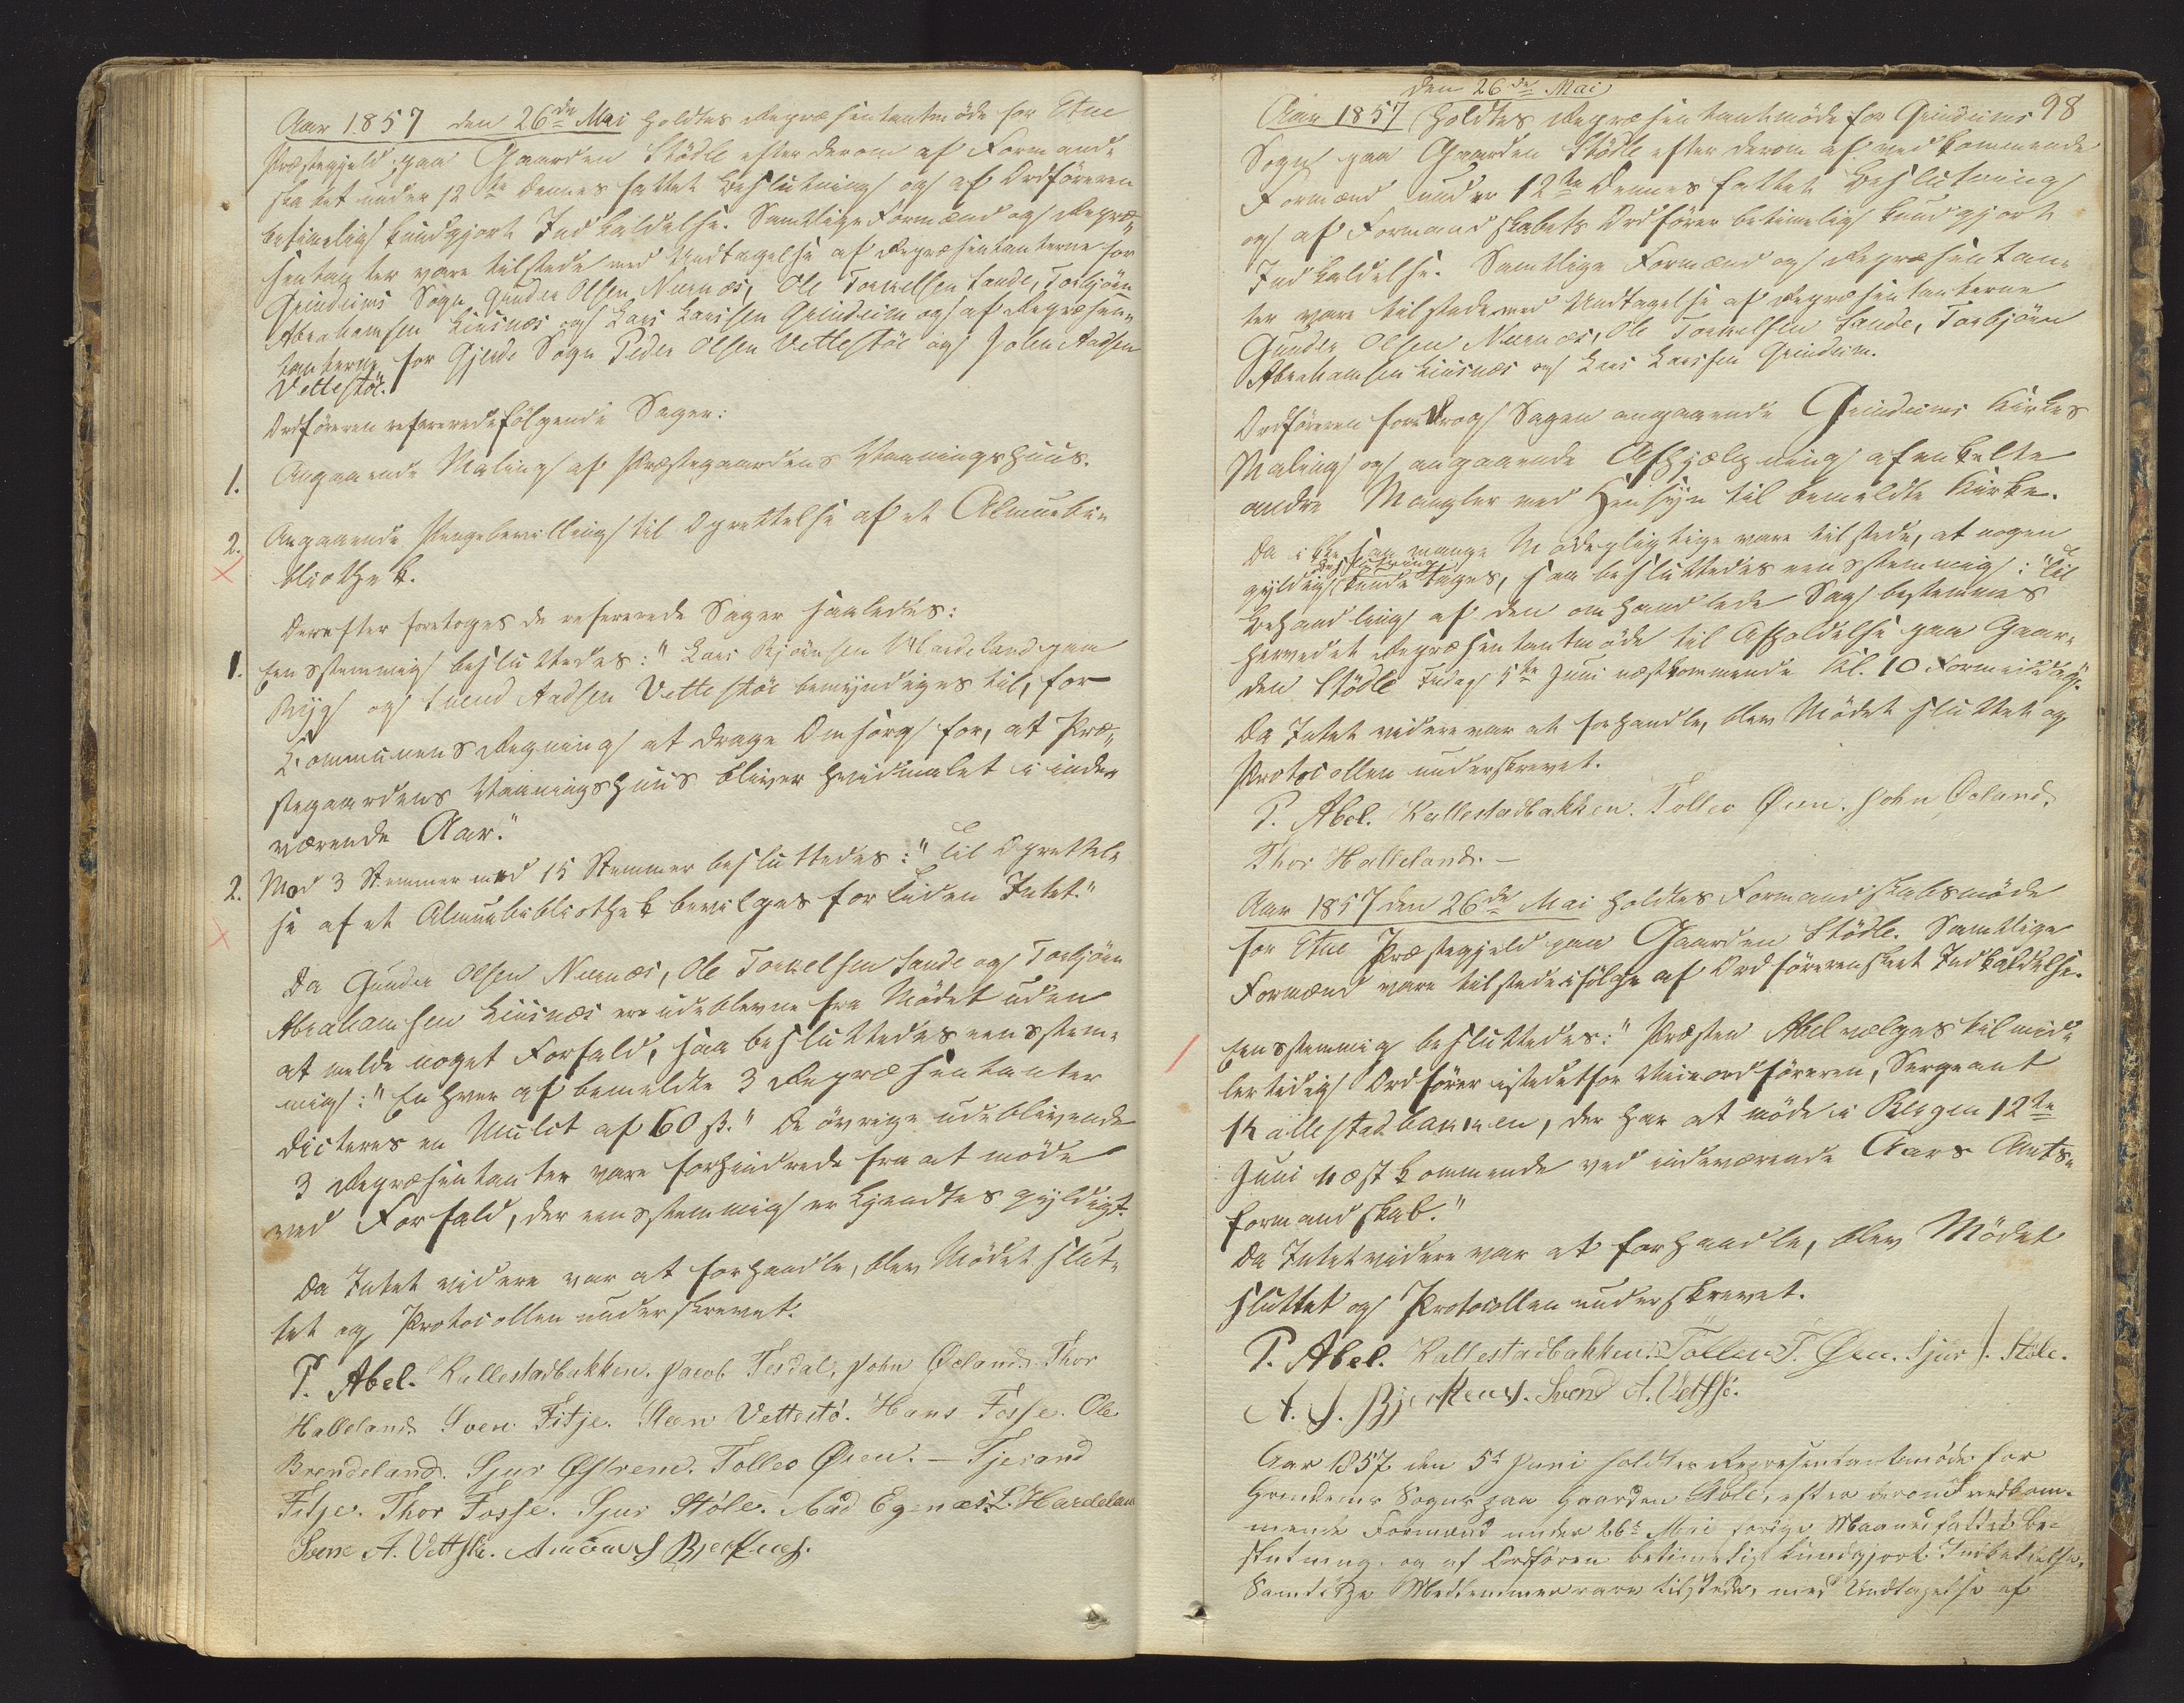 Aar 1857 den 26de Mai holdtes Repræsentantmöde for Etne
Præstegjeld, paa Gaarden Stödle efter derom af Formand-
skabet under 12te dennes fattet Beslutning og af Ordföreren
betimelig kundgjort Indkaldelse. Samtlige Formænd og Repræ-
sentanter vare tilstede med Undtagelse af Repræsentanterne for
Grindeims Sogn Gunder Olsen Nernæs, Ole Torkelsen Sande, Torbjörn
Abrahamsen Liusnæs og Lars Larssen Grindeim og af Repræsen-
tanterne for Gjerde Sogn Peder Olsen Vettestöe og John Aadsen
Vettestöe.
Ordföreren refererede fölgende Sager:
1. Angaaende Maling af Præstegaardens Vaaningshuus.
2. Angaaende Pengebevilling til Oprettelse af et Almuebi-
bliothek.
Derefter foretoges de refererede Sager saaledes:
1. Eensstemmig besluttedes: "Lars Bjömsen Hardeland paa
Ryg og Svend Aadsen Vettestöe bemyndiges til, for
Kommunens Regning at drage Omsorg for, at Præ-
stegaardens Vaaningshuus bliver hvidmalet i inde-
værende Aar."
2. Med 3 Stemmer mod 15 Stemmer besluttedes: "Til Oprettel-
se af et Almuebibliothek bevilges for Tiden Intet."
Da Gunder Olsen Nernæs, Ole Torkelsen Sande og Torbjörn
Abrahamsen Liusnæs ere udeblevne fra Mödet uden
at melde noget Forfald, saa besluttedes eensstem-
mig: "Enhver af bemeldte 3 Repræsentanter
dicteres en Mulct af 60 ß." De övrige udeblivende
3 Repræsentanter vare forhindrede fra at möde
ved Forfald, der eensstemmig erkjendtes gyldigt.
Da Intet videre var at forhandle, blev Mödet slut-
tet og Protocollen underskrevet.
P. Abel. Kallestadbakken. Jacob Tesdal. John Øeland. Thor
Halleland. Sven Fitje. Steen Vettestö. Hans Fosse. Ole
Brendeland. Sjur Østrem. Tollev Øren. – Tjerand
Fitje. Thor Fosse. Sjur Stöle. Aad Egenæs. L. Hardeland
Svend A. Vettstö.
98
den 26de Mai
Aar 1857 holdtes Repræsentantmöde for Grindeims
Sogn paa Gaarden Stödle efter derom af vedkommende
Formænd under 12te dennes fattet Beslutning
og af Formandskabets Ordförer betimelig kundgjort
Indkaldelse. Samtlige Formænd og Repræsentan-
ter vare tilstede med Undtagelse af Repræsentanterne
Gunder Olsen Nernæs, Ole Torkelsen Sande, Torbjörn
Abrahamsen Liusnæs og Lars Larssen Grindeim.
Ordföreren foredrog Sagen angaaende Grindeims Kirkes
Maling og angaaende Afhjælpning af enkelte
andre Mangler med Hensyn til bemeldte Kirke.
Da ikke saa mange Mödepligtige vare tilstede, at nogen
gyldig Beslutning kunde tages, saa besluttedes eensstemmig: "Til
Behandling af den omhandlede Sag bestemmes
herved et Repræsentantmöde til Afholdelse paa Gaar-
den Stödle Fredag 5te Juni næstkommende Kl. 10 Formiddag."
Da Intet videre var at forhandle, blev Mödet sluttet og
Protocollen underskrevet.
P. Abel. Kallestadbakken. Tollev Øren. John Øeland.
Thor Halleland. –
Aar 1857 den 26de Mai holdtes Formandskabsmöde
for Etne Præstegjeld paa Gaarden Stödle. Samtlige
Formænd vare tilstede ifölge af Ordföreren skeet Indkaldelse.
Eensstemmig besluttedes: "Præsten Abel vælges til mid-
lertidig Ordförer istedetfor Viceordföreren, Sergeant
Kallestadbakken, der har at möde i Bergen 12te
Juni næstkommende ved indeværende Aars Amts-
formandskab."
Da Intet videre var at forhandle, blev Mödet
sluttet og Protocollen underskrevet.
P. Abel. Kallestadbakken. Tollev T. Øren. Sjur J. Stöle.
Svend A. Vettstö.
Aar 1857 den 5te Juni holdtes Repræsentantmöde for
Grindeims Sogn paa Gaarden Stöle, efter derom af vedkom-
mende Formænd under 26de Mai forrige Maaned fattet Be-
slutning, og af Ordföreren betimeligt kundgjort Indkaldelse.
Samtlige Medlemmer vare tilstede, med Undtagelse af